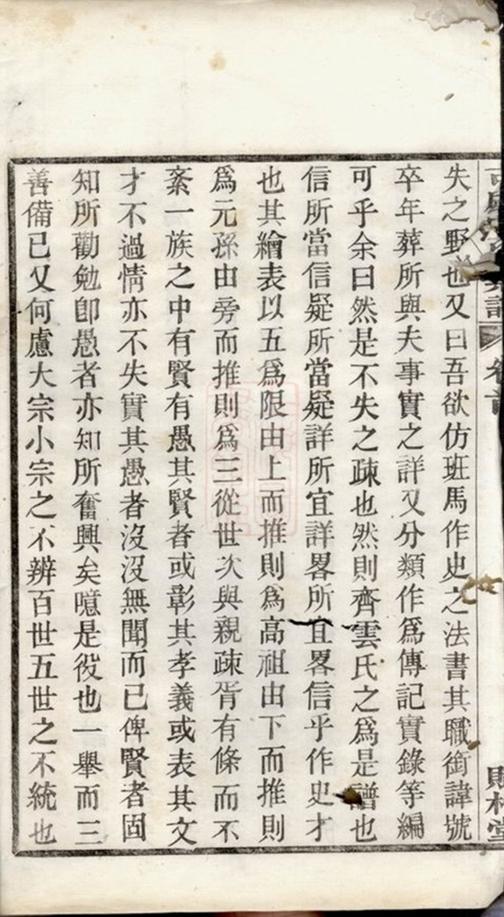 失之野也又曰吾欲仿班馬作史之法書其職銜諱號
卒年葬所與夫事實之詳又分類作為傳記實錄等編
可乎余曰然是不失之疎也然則齊雲氏之爲是譜也
信所當信疑所當疑詳所宜詳畧所宜畧信乎作史才
也其繪表以五爲限由上而推則爲高祖由下而推則
爲元孫由旁而推則爲三從世次與親疎胥有條而不
紊一族之中有賢有愚其賢者或彰其孝義或表其文
才不過情亦不失實其愚者沒沒無聞而已俾賢者固
知所勸勉卽愚者亦知所奮興矣噫是役也一舉而三
善備已又何慮大宗小宗之不辨百世五世之不統也